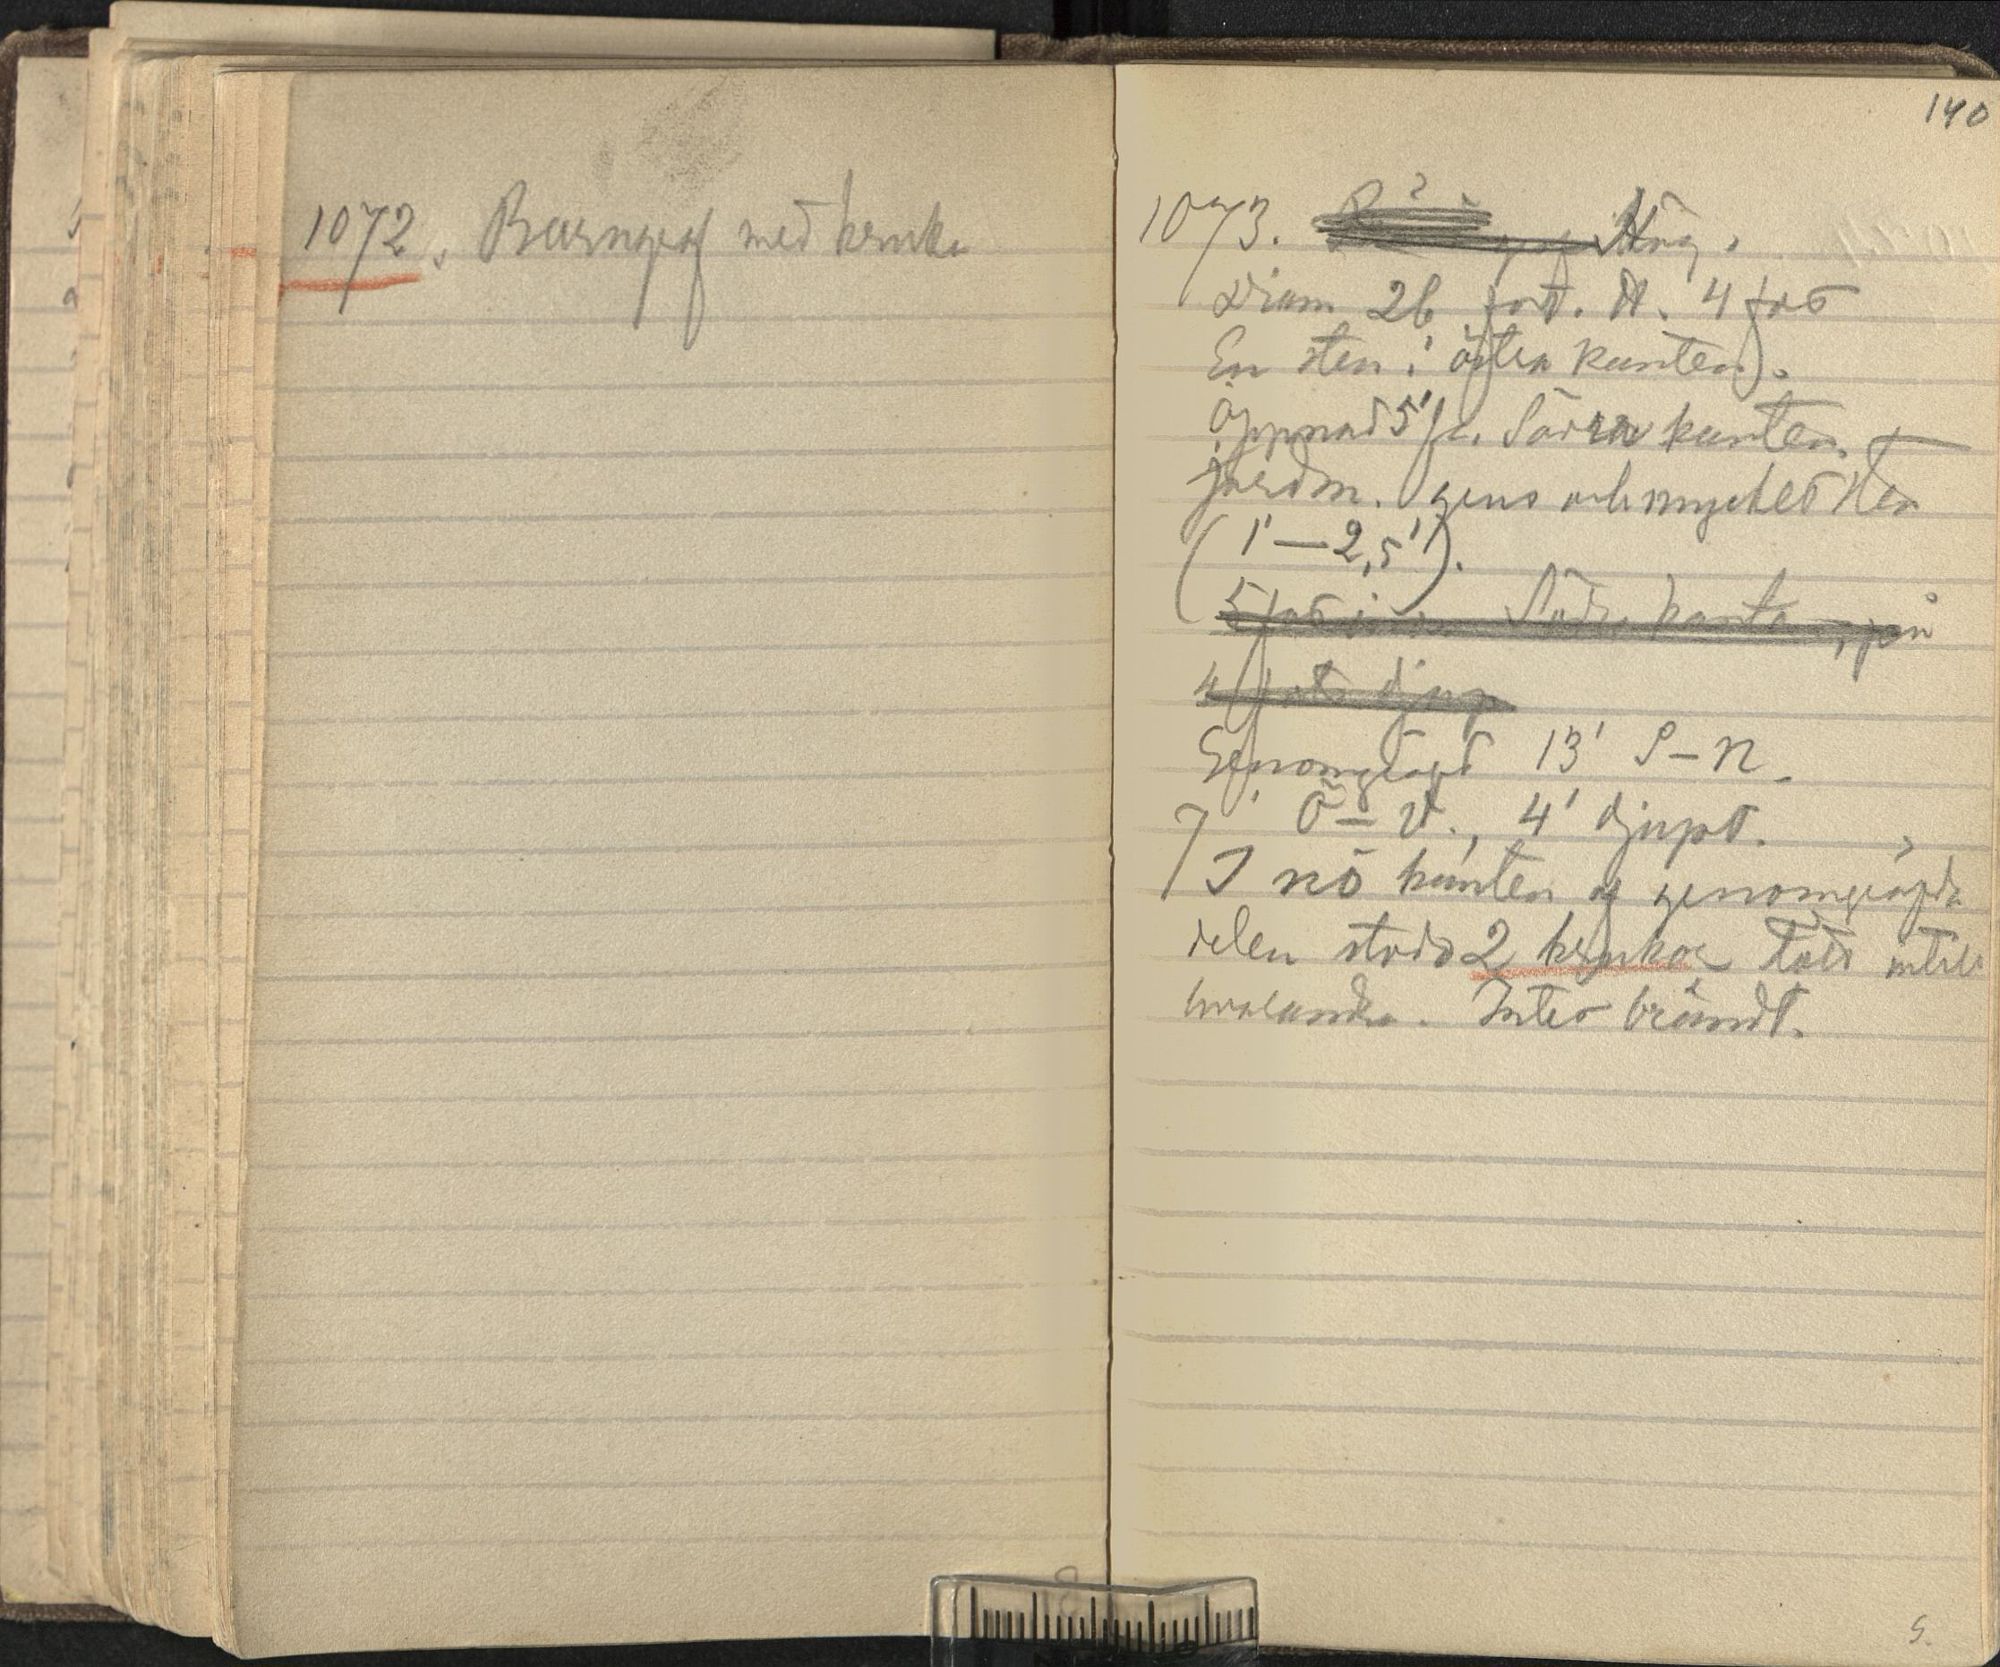 1072. Barngraf med kruka
140
1073. Hög.
Diam 26 fot. H. 4 fot
En sten i östra kanten.
Öppnad 5' fr. Södra kanten.
jordm. grus och mycket sten
(1'—2,5').
5 fot Södra kanten, på
4 fots djup
Genomgräfd 13' S–N.
7' Ö–V., 4' djupt.
I NÖ kanten af genomgräfda
delen stodo 2 krukor tätt intill
hvarandra. Intet brändt.
S.